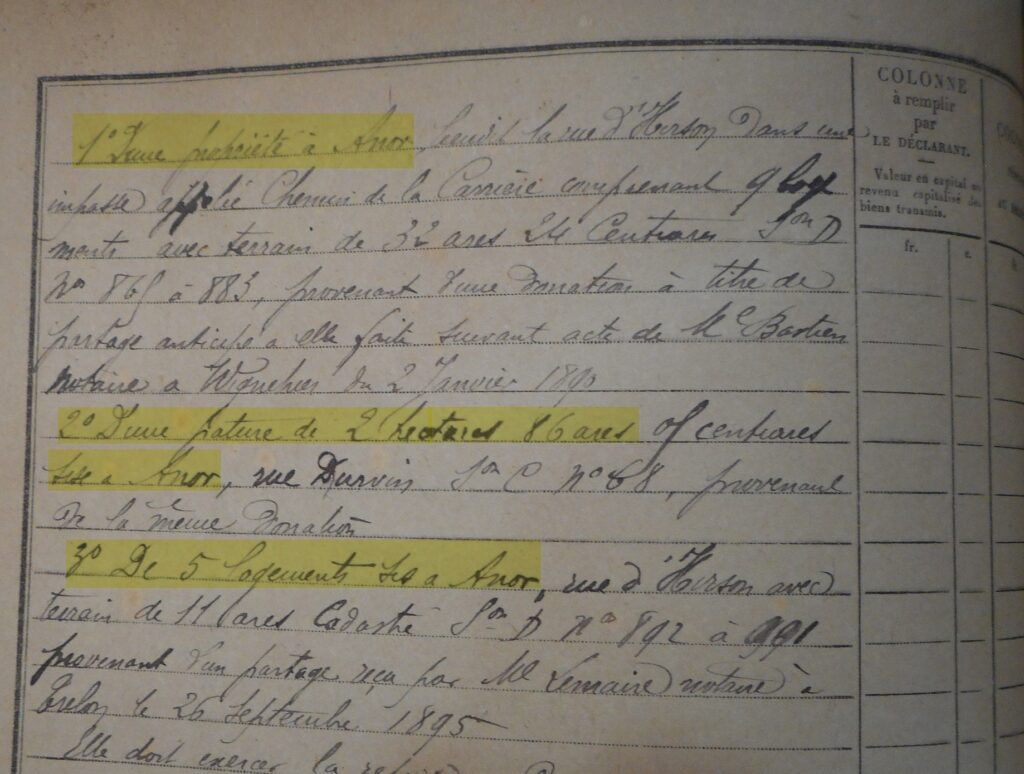 1° D'une propriété à Anor, lieudit la rue d'Hirson dans une
impasse appelé Chemin de la Carrière comprenant 9 loge
ments avec terrain de 32 ares 24 Centiares Son D
Nos 865 à 883, provenant d'une donation à titre de
partage anticipé à elle faite suivant acte de Me Bastien
notaire à Wignehies du 2 Janvier 1890
2° D'une pature de 2 hectares 86 ares centiares
sise à Anor, rue Son C No 68, provenant
de la même donation
3° De 5 logements sis à Anor, rue d'Hirson avec
terrain de 11 ares Cadastré Son D Nos 892 à 991
provenant d'un partage reçu par Me Lemaire notaire à
Trélon le 26 septembre 1895
Elle doit exercer la
COLONNE
à remplir
par
LE DÉCLARANT.
Valeur en capital ou
revenu capitalisé des
biens transmis.
fr.
c.